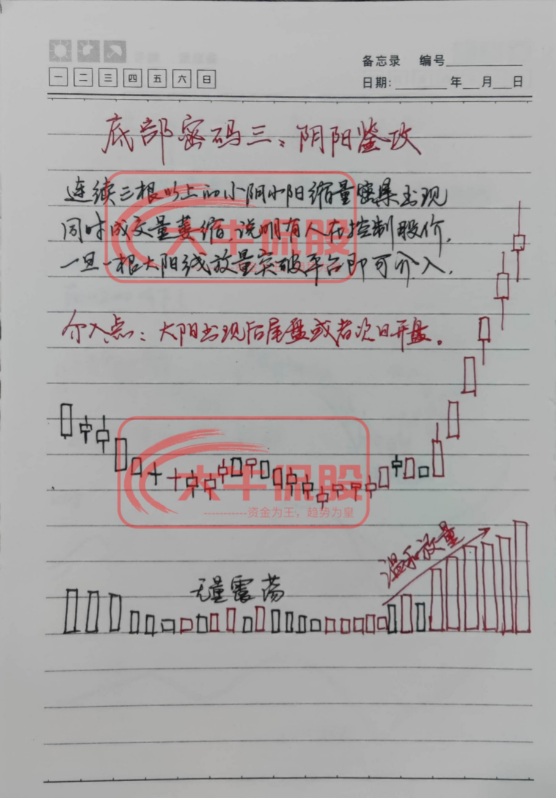 备忘录 编号
一 二 三 四 五 六 日
日期: 年 月 日
底部密码三：阴阳鉴政
连续三根以上的小阴小阳缩量密集出现
同时成交量萎缩,说明有人在控制股价,
一旦一根大阳线放量突破平台即可介入.
介入点：大阳出现后尾盘或者次日开盘。
大牛保股
大牛保股
资金为王，趋势为皇
温和放量
无量震荡